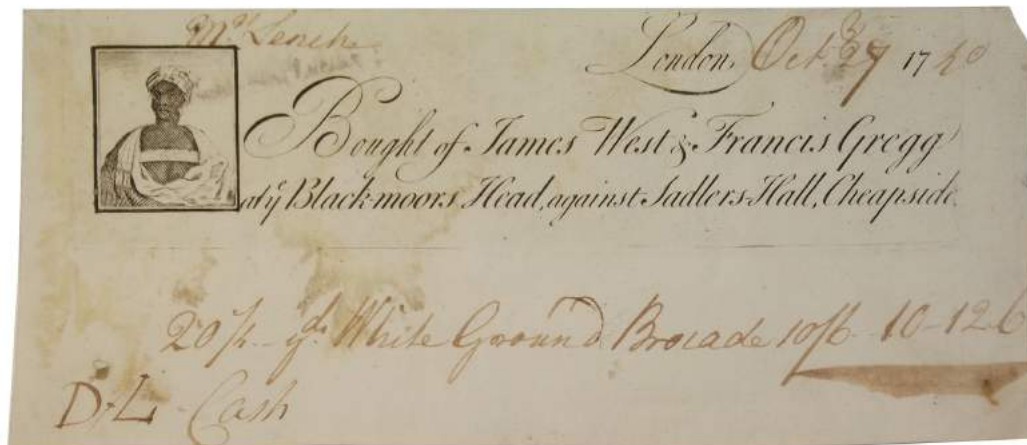 London, Oct. 17
Bought of James West & Francis Gregg
at yͤ Black-moors Head, against Sadlers-Hall, Cheapside.
20 yds White Ground Brocade 10/6 10-12-6
Cash